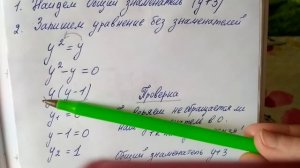 1. Найдем общий знаменатель (y+3)
2. Запишем уравнение без знаменателей
y² = y
y² - y = 0
y(y-1)
Проверка
y₁ = 0
не обращается ли
y - 1 = 0
в 0.
y₂ = 1
Общий знаменатель y+3